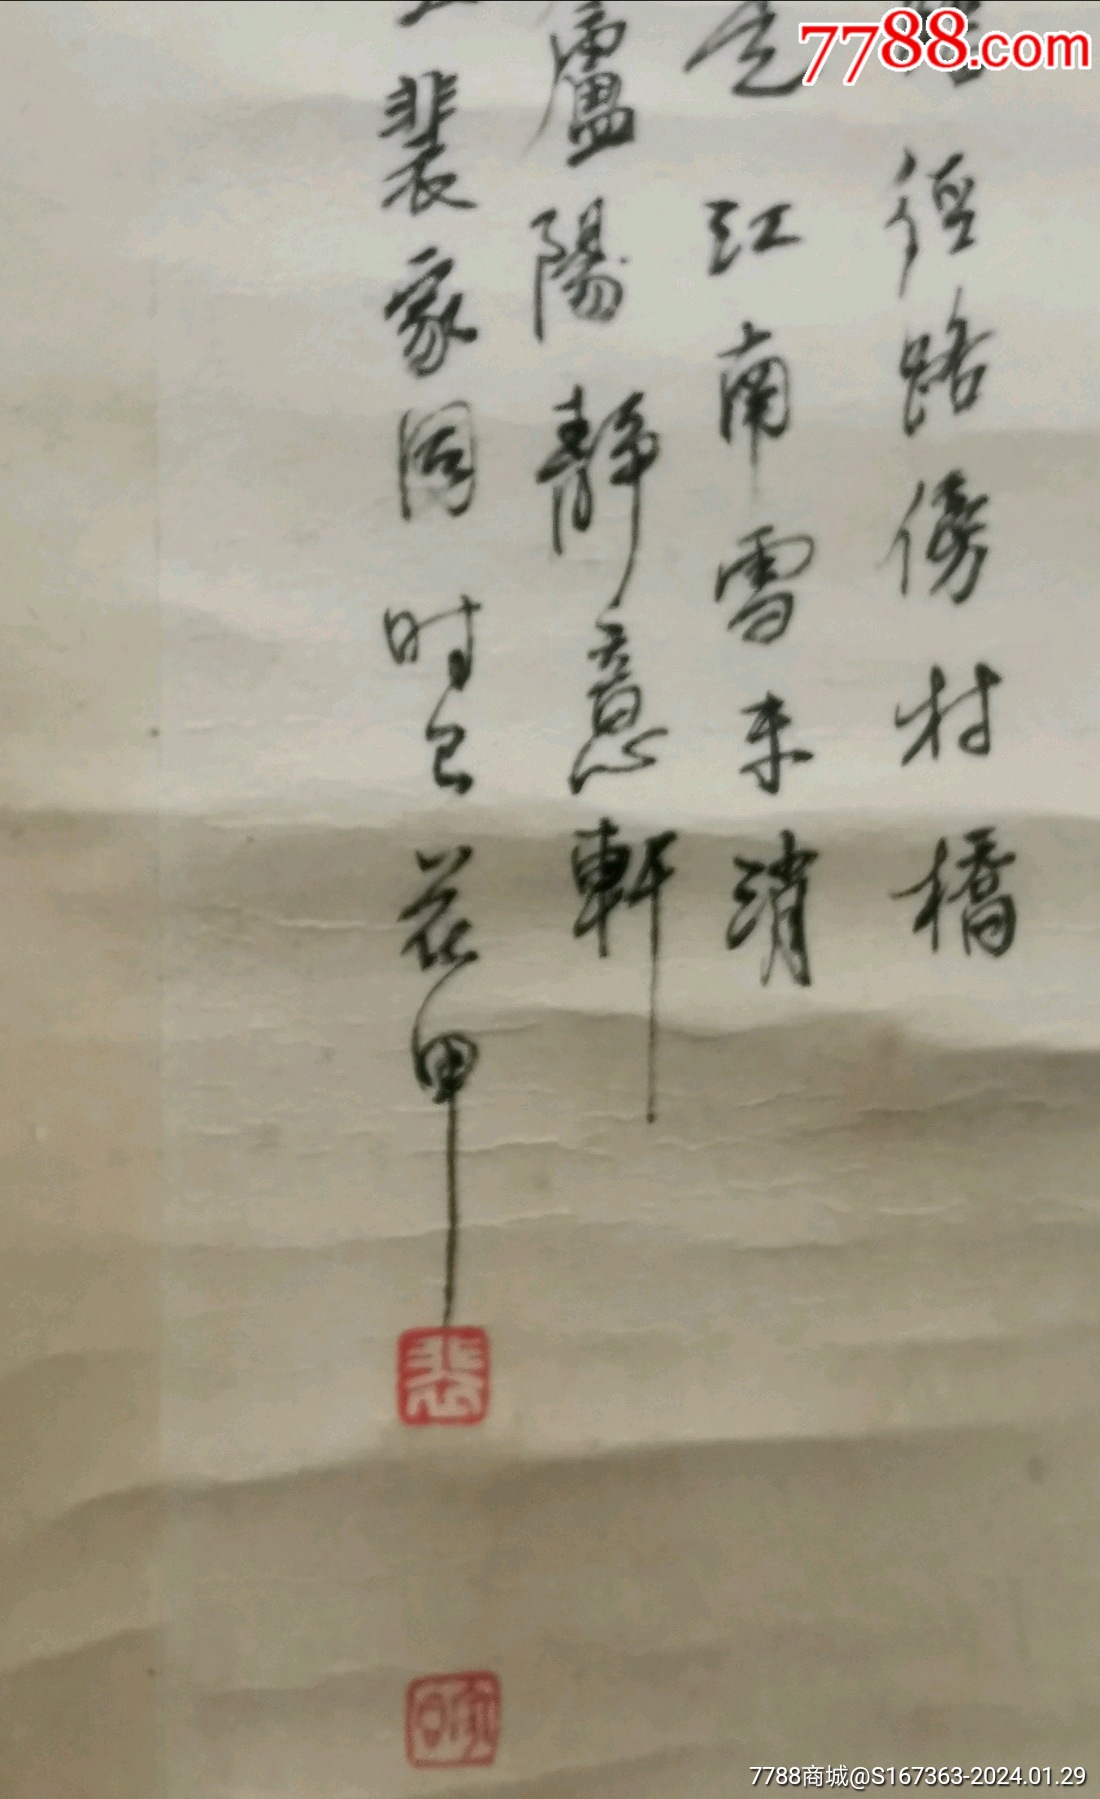 7788.com
径路傍村橋
江南雪未消
廬陽靜意軒
裴家同时已花甲
裴
7788商城@S167363-2024.01.29